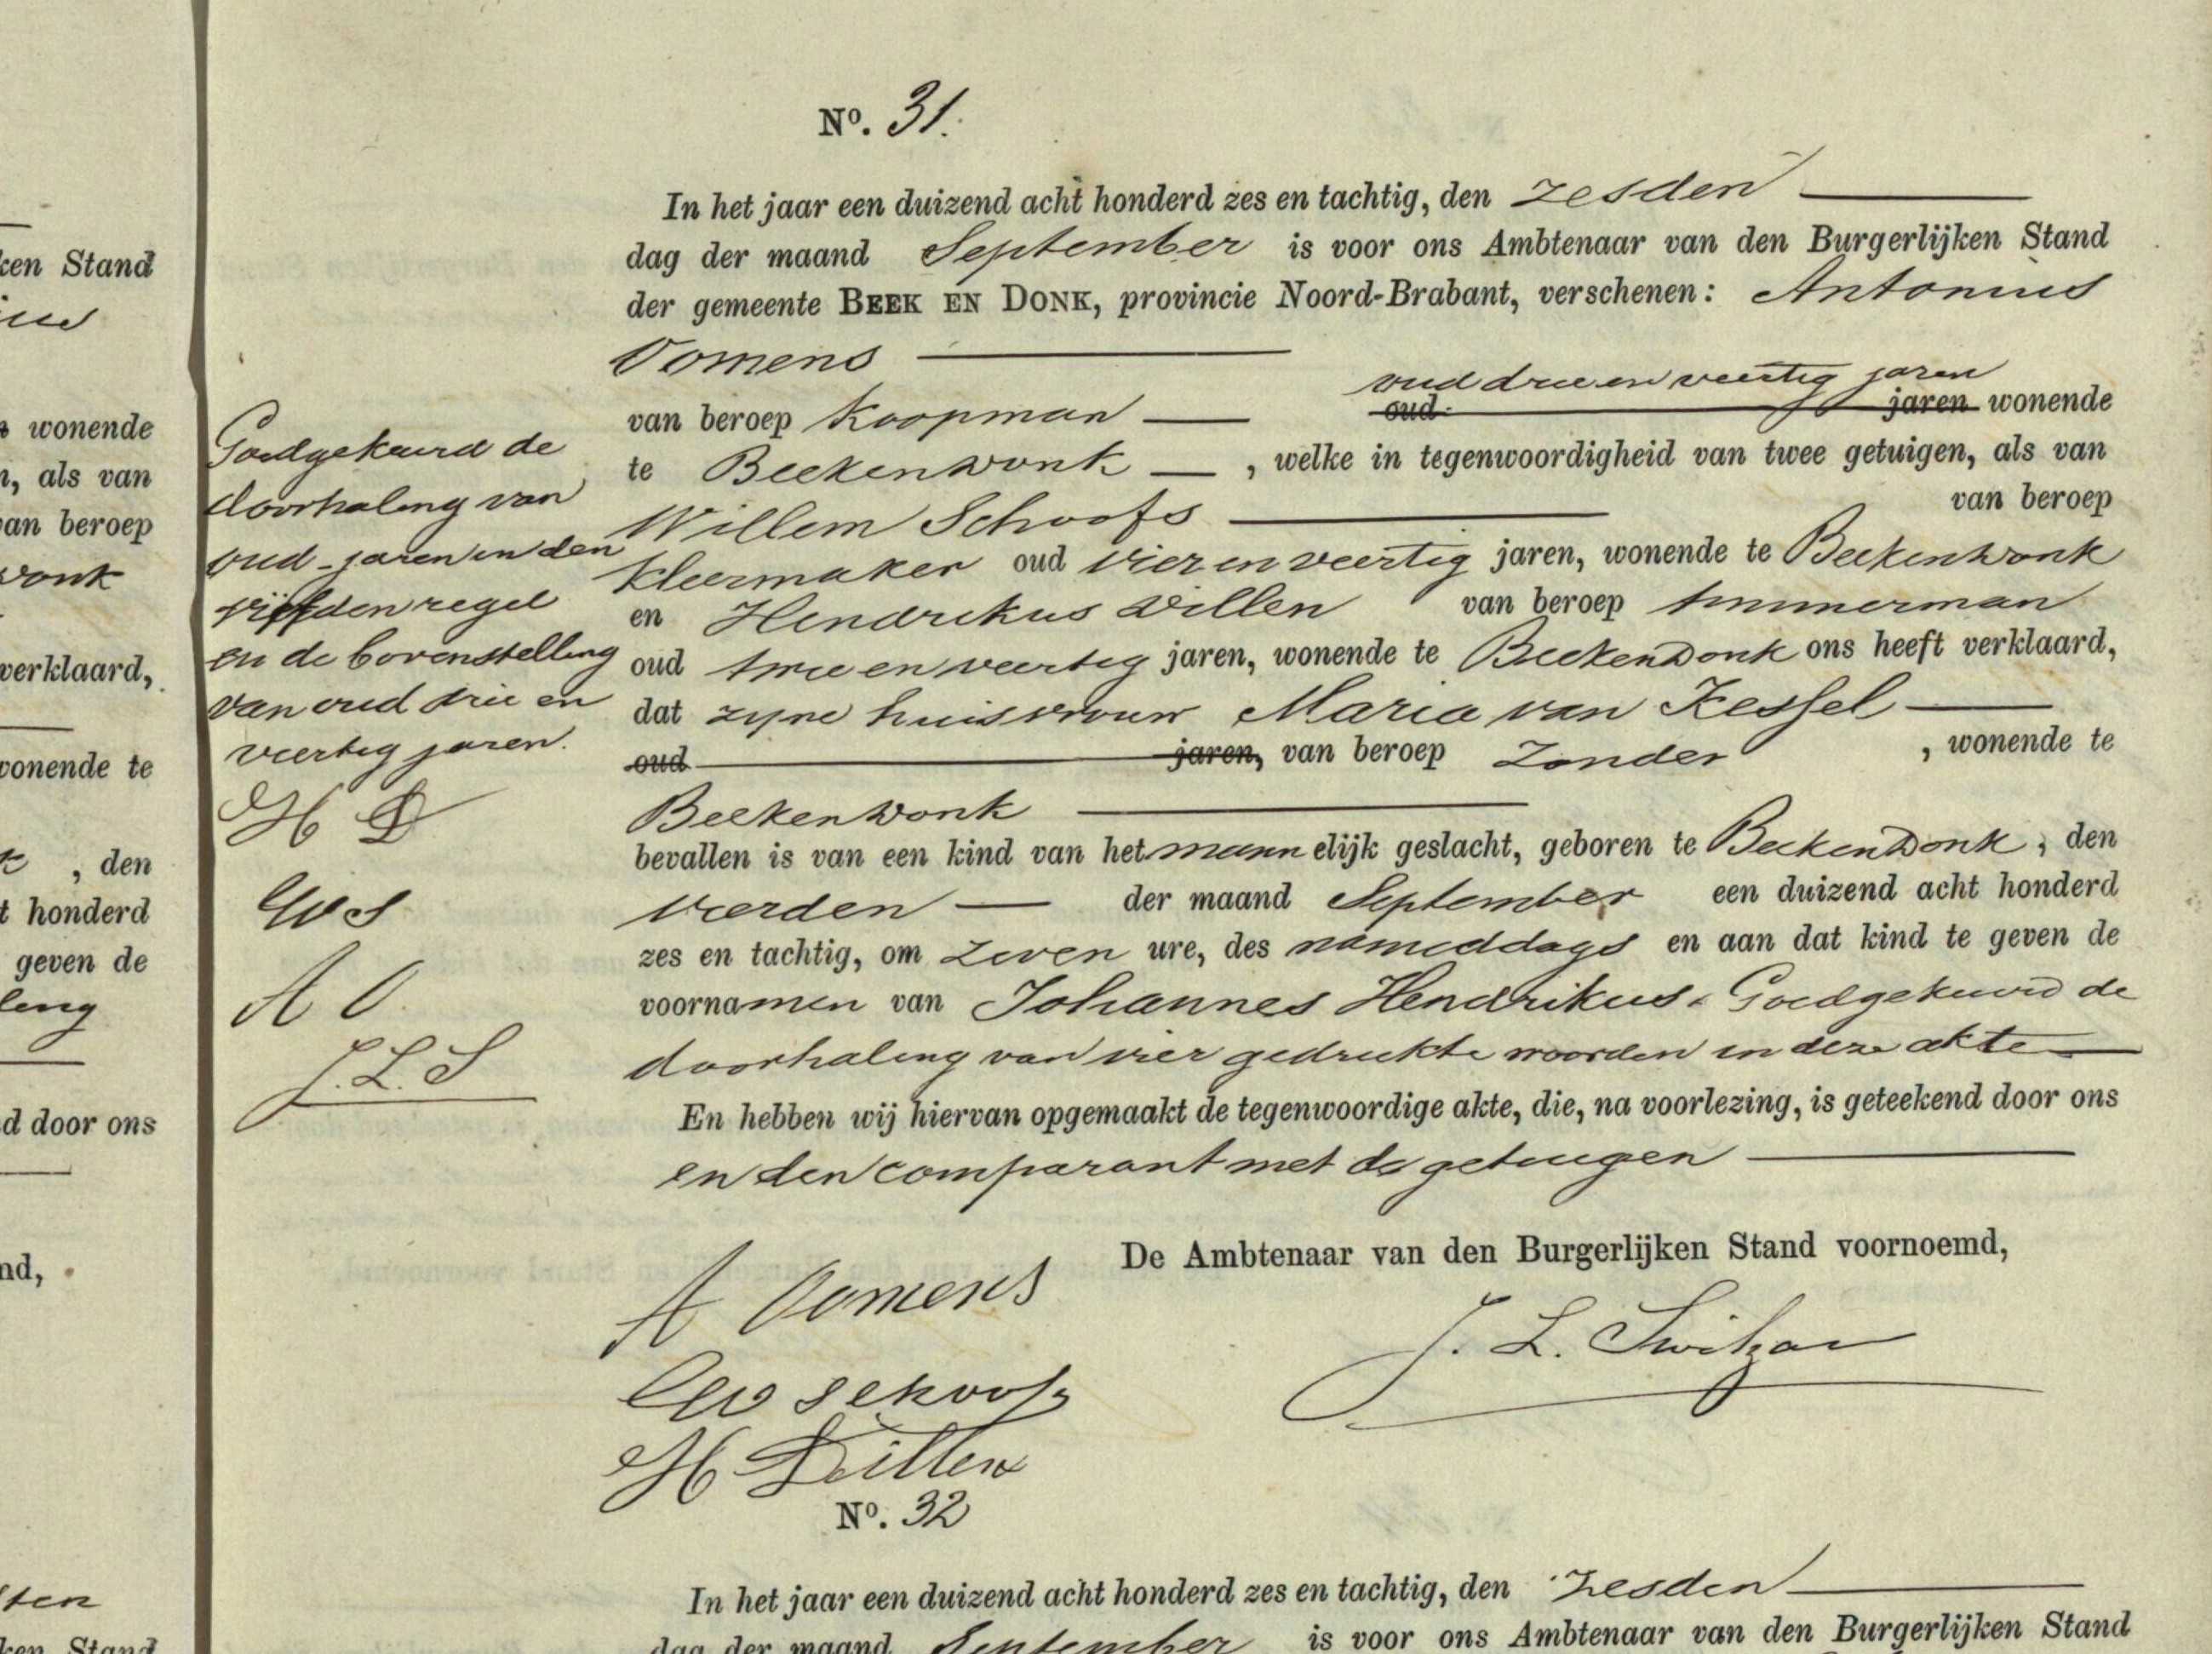 ken Stand
wonende
n, als van
van beroep
wonk
verklaard,
wonende te
, den
t honderd
geven de
ling
d door ons
nd,
sten
ken Stand
No. 31.
In het jaar een duizend acht honderd zes en tachtig, den zesden
dag der maand September is voor ons Ambtenaar van den Burgerlijken Stand
der gemeente BEEK EN DONK, provincie Noord-Brabant, verschenen: Antonius
Oomens
oud drie en veertig jaren
van beroep Koopman oud jaren wonende
te Beekendonk , welke in tegenwoordigheid van twee getuigen, als van
Willem Schoofs van beroep
kleermaker oud vier en veertig jaren, wonende te Beekendonk
en Hendrikus Dillen van beroep timmerman
oud twee en veertig jaren, wonende te Beekendonk ons heeft verklaard,
dat zyne huisvrouw Maria van Kessel
oud jaren, van beroep Zonder , wonende te
Beekendonk
bevallen is van een kind van het mannelijk geslacht, geboren te Beekendonk, den
vierden der maand September een duizend acht honderd
zes en tachtig, om zeven ure, des nameddags en aan dat kind te geven de
voornamen van Johannes Hendrikus. Goedgekeurd de
doorhaling van vier gedrukte woorden in deze akte
En hebben wij hiervan opgemaakt de tegenwoordige akte, die, na voorlezing, is geteekend door ons
en den comparant met de getuigen
De Ambtenaar van den Burgerlijken Stand voornoemd,
A Oomens
schoofs
H Dillen
J. L.
Goedgekeurd de
doorhaling van
oud - jaren in den
vijfden regel
en de bovenstelling
van oud drie en
veertig jaren.
H D
WS
A O.
J. L. S
No. 32
In het jaar een duizend acht honderd zes en tachtig, den zesden
dag der maand September is voor ons Ambtenaar van den Burgerlijken Stand